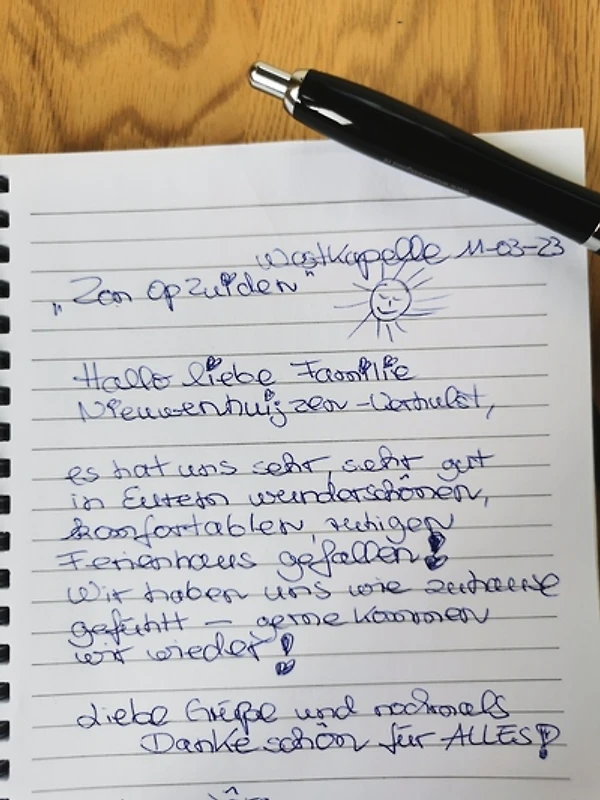 Westkapelle 11-03-23
„Zon op Zuiden"
Hallo liebe Familie
Nieuwenhuijzen-Verhulst,
es hat uns sehr, sehr gut
in Eurem wunderschönen,
komfortablen, ruhigen
Ferienhaus gefallen!
Wir haben uns wie zuhause
gefühlt – gerne kommen
wir wieder!
Liebe Grüße und nochmals
Dankeschön für ALLES!